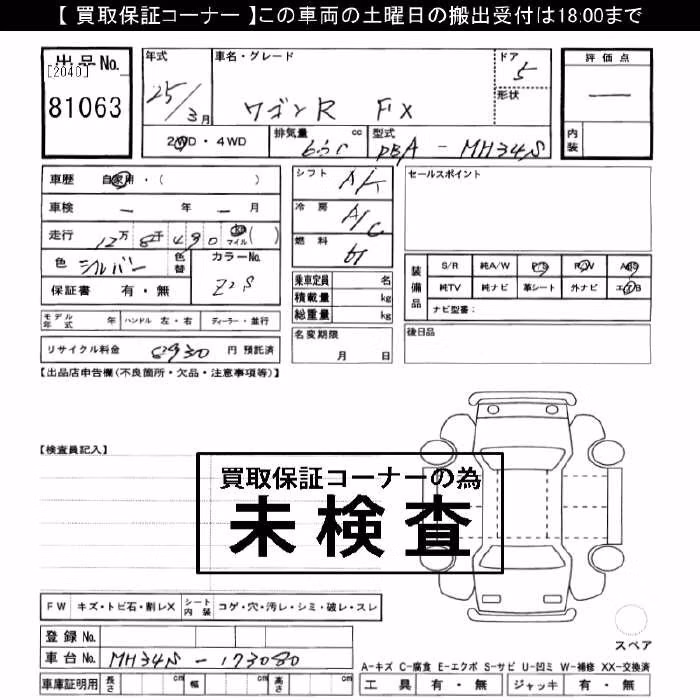 【 買取保証コーナー 】この車両の土曜日の搬出受付は18:00まで
出品No.
[2040]
81063
年式
25/3月
車名・グレード
ワゴンR FX
ドア
5
形状
評価点
内装
2WD・4WD
排気量 cc
型式
DBA - MH34S
車歴 自家用・( )
車検 ー 年 ー 月
走行 12万 8千 4 9 0 マイル( )
色 シルバー 色替
カラーNo.
Z2S
保証書 有・無
シフト
冷房
A/C
燃料
乗車定員 名
積載量 kg
総重量 kg
セールスポイント
装備品
S/R 純A/W P/S P/W ABS
純TV 純ナビ 革シート 外ナビ エアB
ナビ型番:
モデル年式 年 ハンドル 左・右 ディーラー・並行
名変期限
月 日
後日品
リサイクル料金 6930 円 預託済
【出品店申告欄(不良箇所・欠品・注意事項等)】
【検査員記入】
買取保証コーナーの為
未検査
FW キズ・トビ石・割レX シート内装 コゲ・穴・汚レ・シミ・破レ・スレ
スペア
登録 No.
車台 No. MH34S - 173080
A-キズ C-腐食 E-エクボ S-サビ U-凹ミ W-補修 XX-交換済
車庫証明用 長さ cm 幅 cm 高さ cm
工具 有・無 ジャッキ 有・無